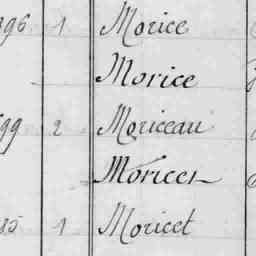 396 1 Morice
Morice
99 2 Moriceau
Moricet
85 1 Moricet